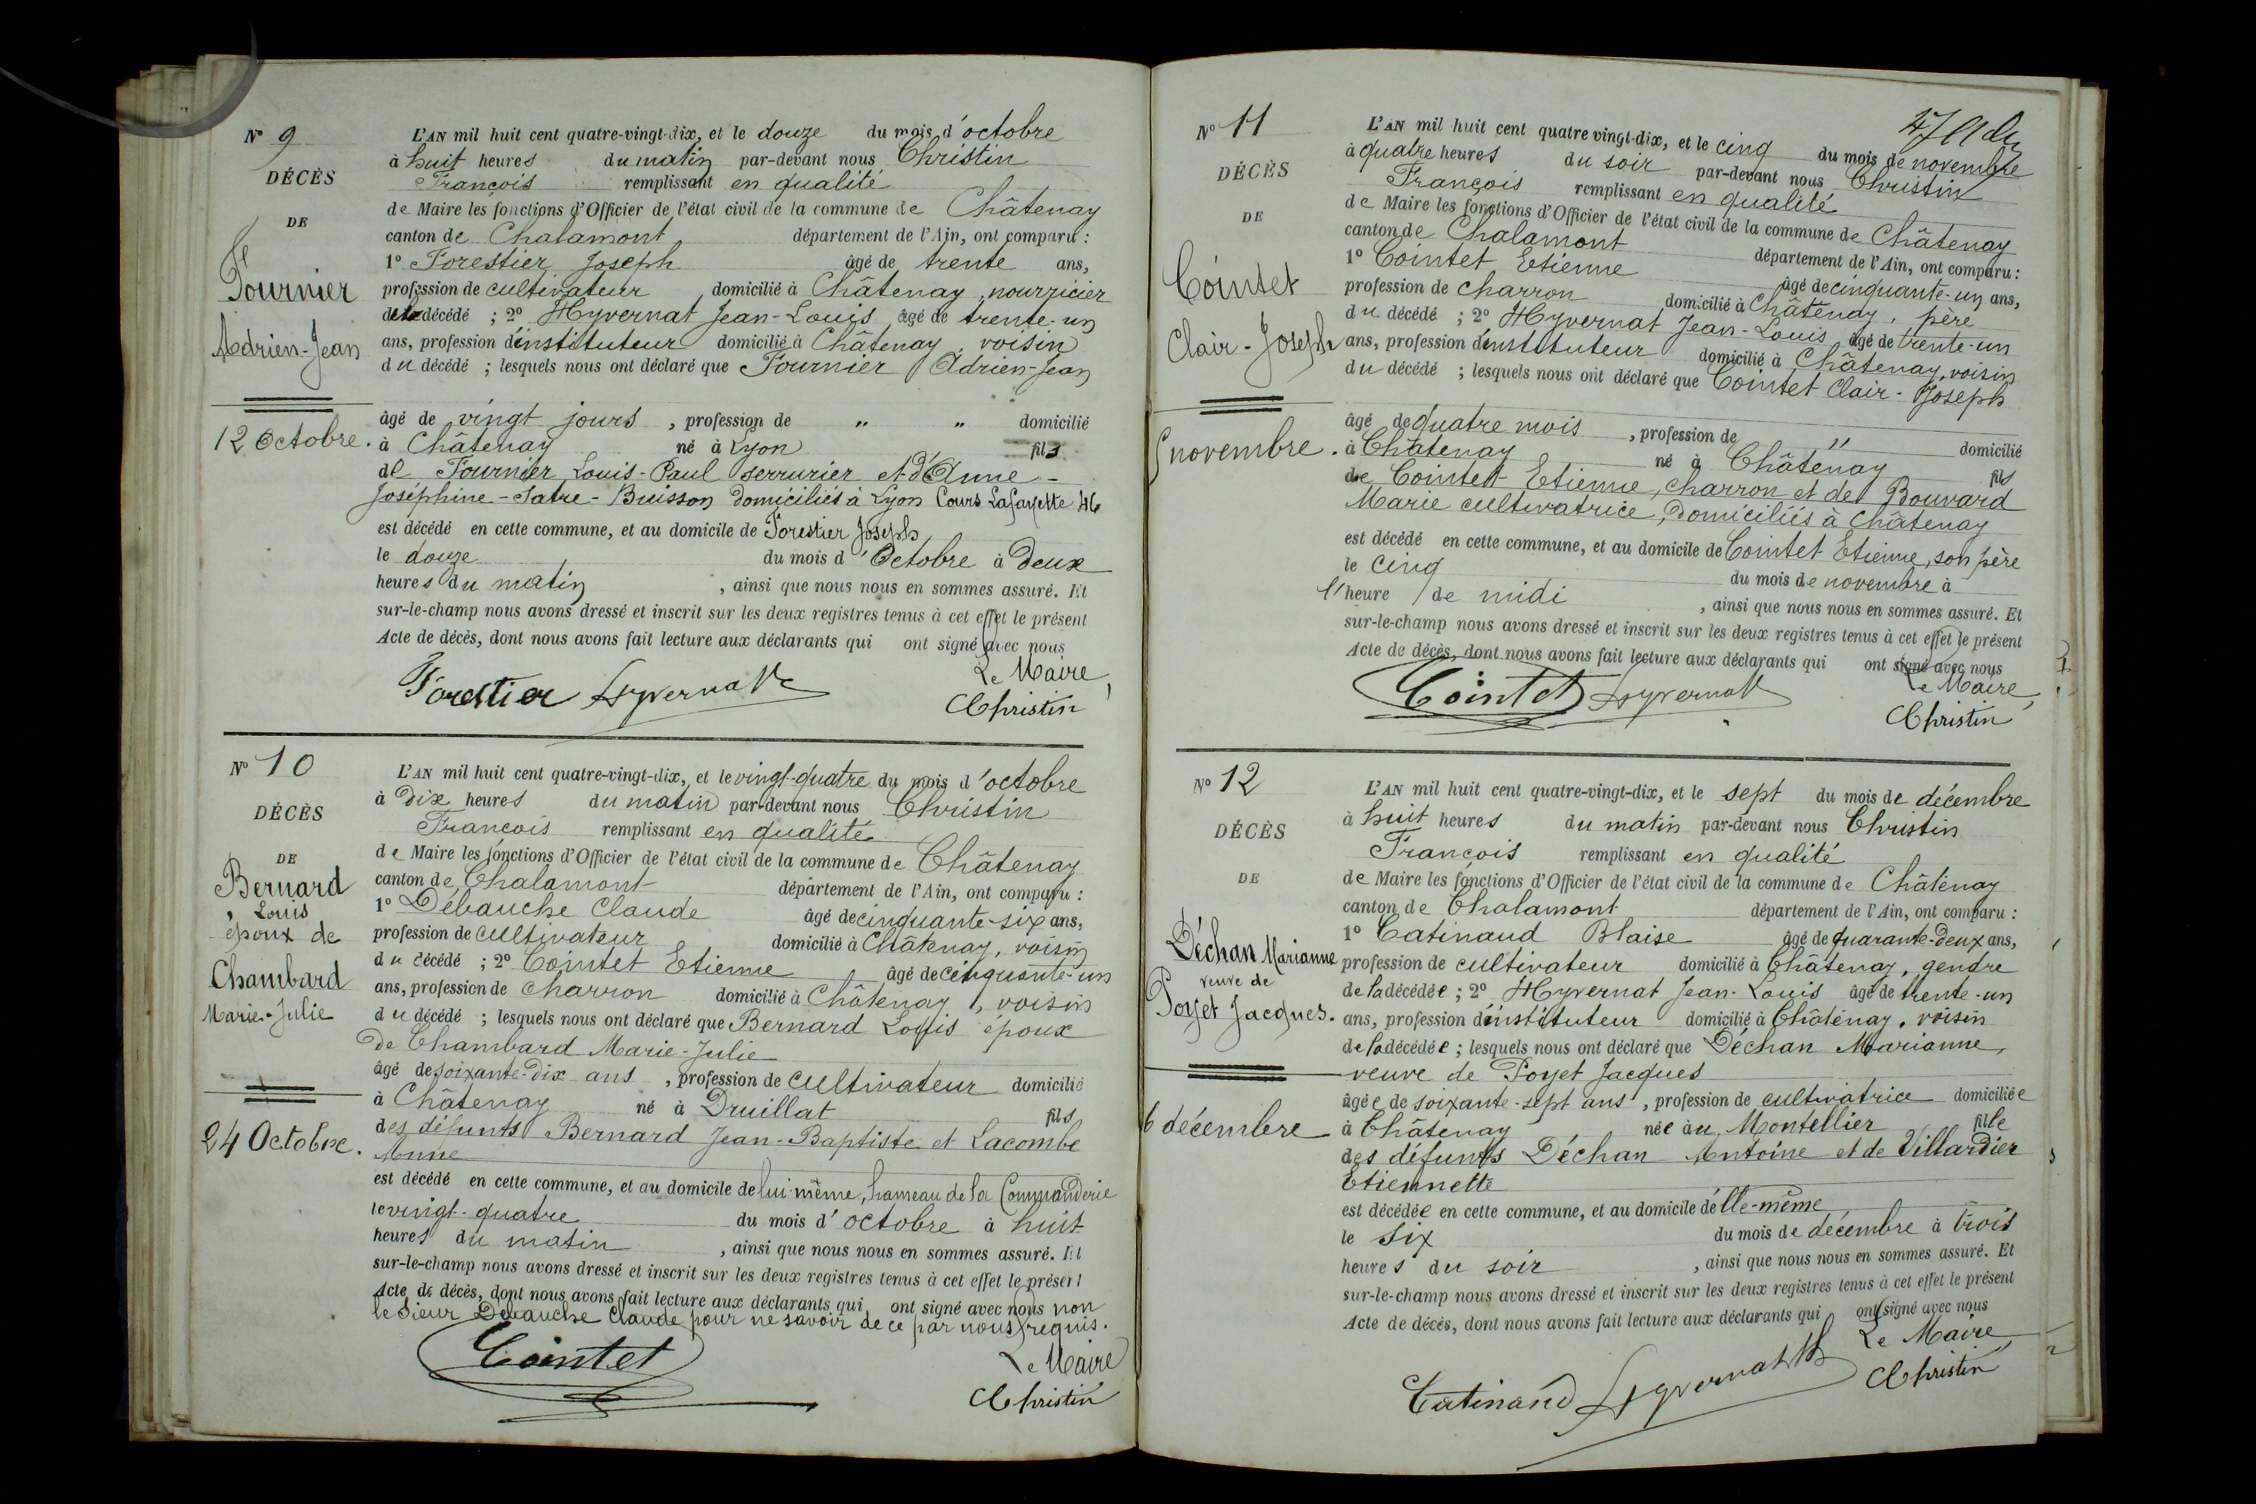 Nº 9
DÉCÈS
DE
Fournier
Adrien-Jean
12 Octobre.
L'AN mil huit cent quatre-vingt-dix, et le douze du mois d'octobre
à huit heures du matin par-devant nous Christin
François remplissant en qualité
de Maire les fonctions d'Officier de l'état civil de la commune de Châtenay
canton de Chalamont département de l'Ain, ont comparu :
1º Forestier Joseph âgé de trente ans,
profession de cultivateur domicilié à Châtenay, nourricier
du décédé ; 2º Hyvernat Jean-Louis âgé de trente-un
ans, profession d'instituteur domicilié à Châtenay, voisin
du décédé ; lesquels nous ont déclaré que Fournier Adrien-Jean
âgé de vingt jours , profession de " " domicilié
à Châtenay né à Lyon fils
de Fournier Louis-Paul serrurier et d'Anne-
Joséphine-Satre-Buisson domiciliés à Lyon Cours Lafayette 46
est décédé en cette commune, et au domicile de Forestier Joseph
le douze du mois d'Octobre à deux
heures du matin , ainsi que nous nous en sommes assuré. Et
sur-le-champ nous avons dressé et inscrit sur les deux registres tenus à cet effet le présent
Acte de décès, dont nous avons fait lecture aux déclarants qui ont signé avec nous
Le Maire,
Forestier Hyvernat Christin
Nº 10
DÉCÈS
DE
Bernard
Louis
époux de
Chambard
Marie-Julie
24 Octobre.
L'AN mil huit cent quatre-vingt-dix, et le vingt-quatre du mois d'octobre
à dix heures du matin par-devant nous Christin
François remplissant en qualité
de Maire les fonctions d'Officier de l'état civil de la commune de Châtenay
canton de Chalamont département de l'Ain, ont comparu :
1º Débauche Claude âgé de cinquante-six ans,
profession de cultivateur domicilié à Châtenay, voisin
du décédé ; 2º Cointet Etienne âgé de cinquante-un
ans, profession de charron domicilié à Châtenay, voisin
du décédé ; lesquels nous ont déclaré que Bernard Louis époux
de Chambard Marie-Julie
âgé de soixante-dix ans , profession de cultivateur domicilié
à Châtenay né à Druillat fils
des défunts Bernard Jean-Baptiste et Lacombe
Anne
est décédé en cette commune, et au domicile de lui-même, hameau de la Commanderie
le vingt-quatre du mois d'octobre à huit
heures du matin , ainsi que nous nous en sommes assuré. Et
sur-le-champ nous avons dressé et inscrit sur les deux registres tenus à cet effet le présent
Acte de décès, dont nous avons fait lecture aux déclarants qui ont signé avec nous non
le Sieur Débauche Claude pour ne savoir de ce par nous requis.
Le Maire
Cointet Christin
Nº 11
DÉCÈS
DE
Cointet
Clair-Joseph
5 novembre.
L'AN mil huit cent quatre vingt-dix, et le cinq du mois de novembre
à quatre heures du soir par-devant nous Christin
François remplissant en qualité
de Maire les fonctions d'Officier de l'état civil de la commune de Châtenay
canton de Chalamont département de l'Ain, ont comparu :
1º Cointet Etienne âgé de cinquante-un ans,
profession de charron domicilié à Châtenay, père
du décédé ; 2º Hyvernat Jean-Louis âgé de trente-un
ans, profession d'instituteur domicilié à Châtenay, voisin
du décédé ; lesquels nous ont déclaré que Cointet Clair-Joseph
âgé de quatre mois , profession de " domicilié
à Châtenay né à Châtenay fils
de Cointet Etienne, charron et de Bouvard
Marie cultivatrice, domiciliés à Châtenay
est décédé en cette commune, et au domicile de Cointet Etienne, son père
le cinq du mois de novembre à
l'heure de midi , ainsi que nous nous en sommes assuré. Et
sur-le-champ nous avons dressé et inscrit sur les deux registres tenus à cet effet le présent
Acte de décès, dont nous avons fait lecture aux déclarants qui ont signé avec nous
Le Maire,
Cointet Hyvernat Christin
Nº 12
DÉCÈS
DE
Déchan Marianne
veuve de
Poyet Jacques.
6 décembre
L'AN mil huit cent quatre-vingt-dix, et le sept du mois de décembre
à huit heures du matin par-devant nous Christin
François remplissant en qualité
de Maire les fonctions d'Officier de l'état civil de la commune de Châtenay
canton de Chalamont département de l'Ain, ont comparu :
1º Catinaud Blaise âgé de quarante-deux ans,
profession de cultivateur domicilié à Châtenay, gendre
de la décédée ; 2º Hyvernat Jean-Louis âgé de trente-un
ans, profession d'instituteur domicilié à Châtenay, voisin
de la décédée ; lesquels nous ont déclaré que Déchan Marianne,
veuve de Poyet Jacques
âgée de soixante-sept ans , profession de cultivatrice domiciliée
à Châtenay née au Montellier fille
des défunts Déchan Antoine et de Villardier
Etiennette
est décédée en cette commune, et au domicile d'elle-même
le six du mois de décembre à trois
heures du soir , ainsi que nous nous en sommes assuré. Et
sur-le-champ nous avons dressé et inscrit sur les deux registres tenus à cet effet le présent
Acte de décès, dont nous avons fait lecture aux déclarants qui ont signé avec nous
Le Maire,
Catinaud Hyvernat Christin